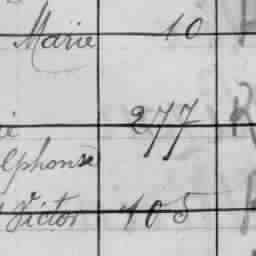 Marie 10
277
lphonse
Victor 105